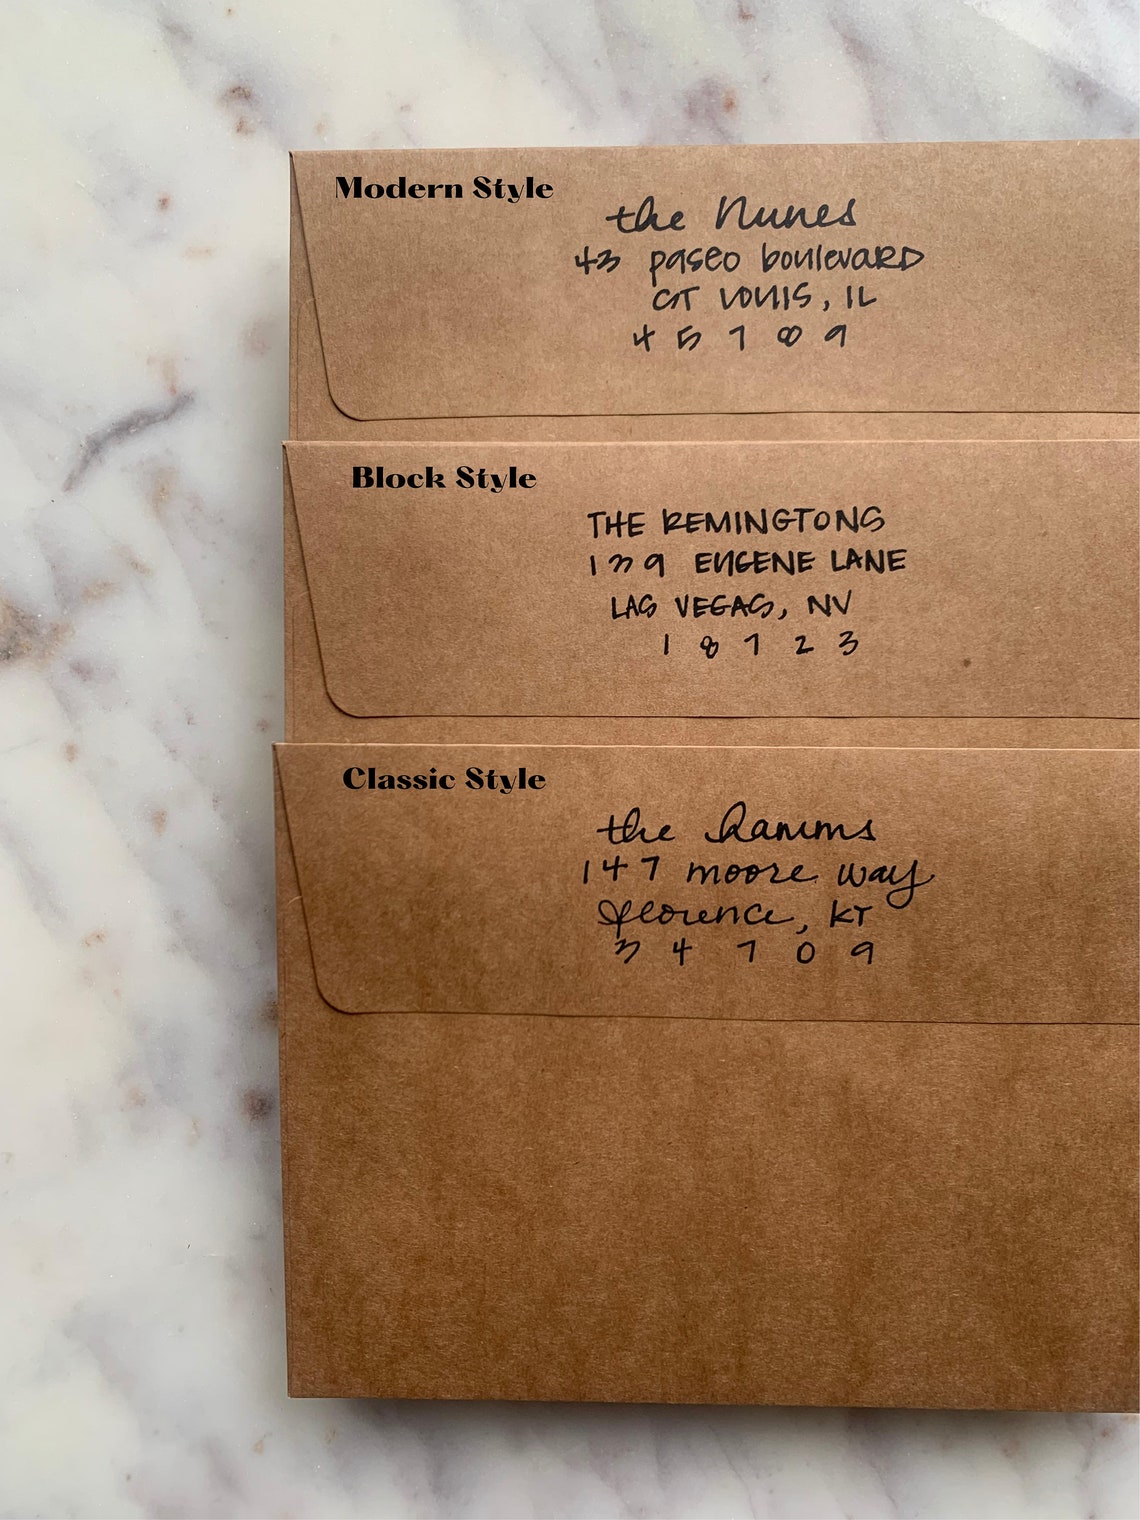 Modern Style
the Nunes
43 paseo boulevard
ST LOUIS, IL
45789
Block Style
THE REMINGTONS
139 EUGENE LANE
LAS VEGAS, NV
18723
Classic Style
the Ramms
147 moore way
florence, KY
34709